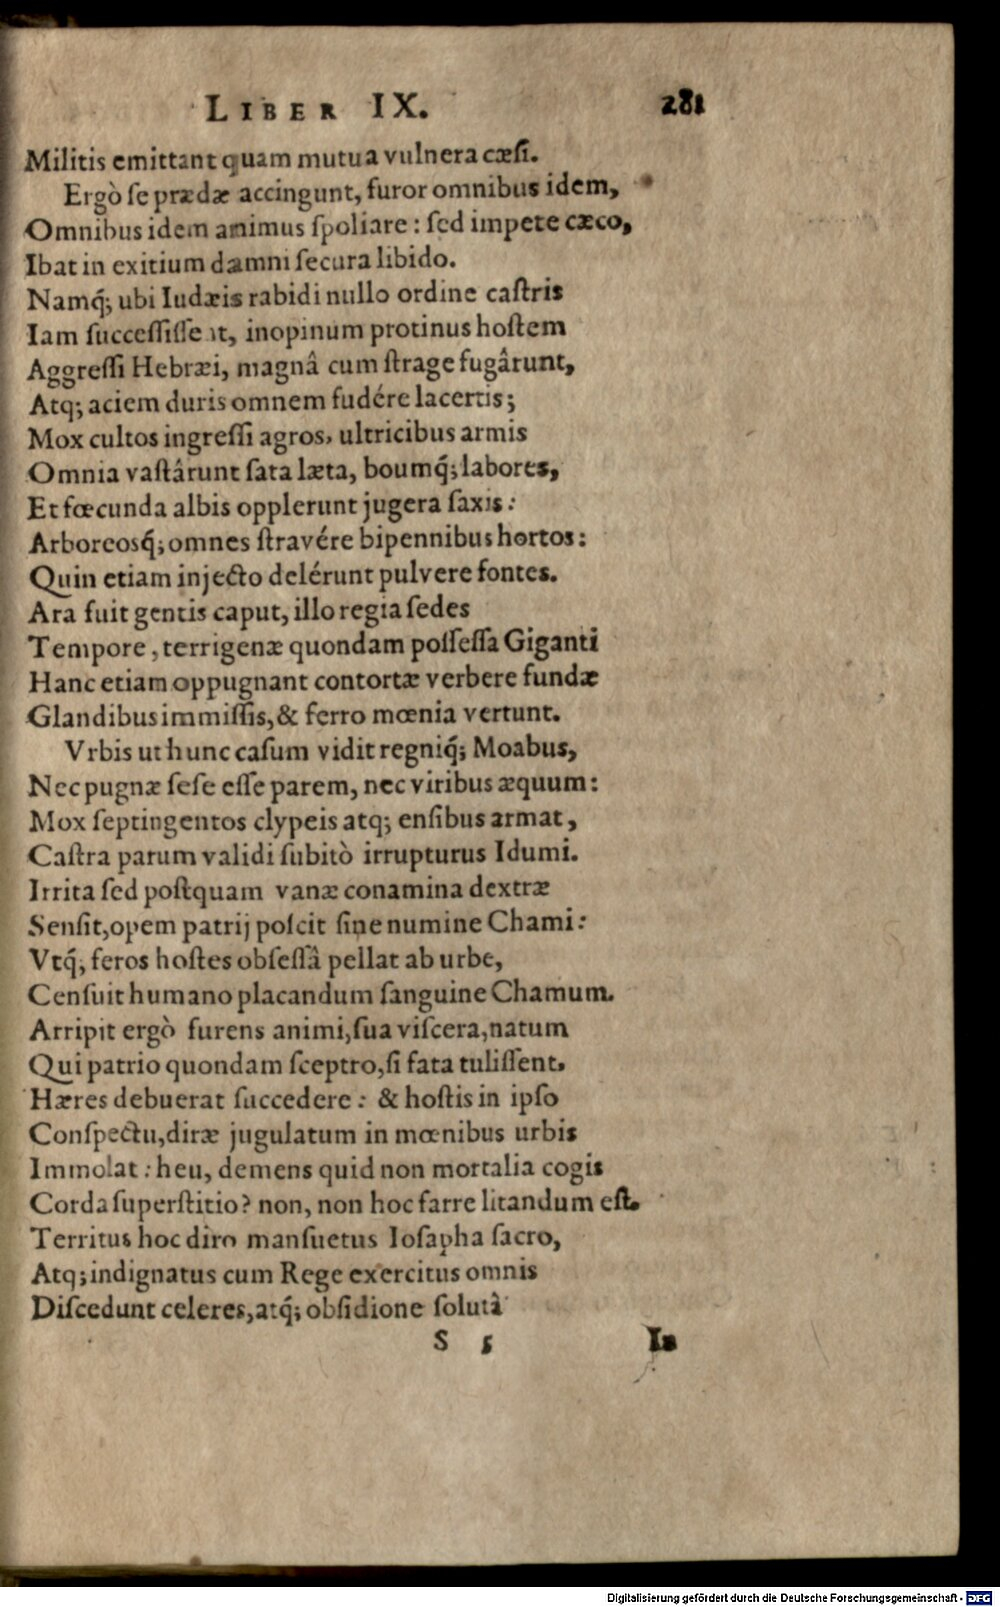 LIBER IX. 281
Militis emittant quam mutua vulnera cæsi.
Ergò se prædæ accingunt, furor omnibus idem,
Omnibus idem animus spoliare: sed impete cæco,
Ibat in exitium damni secura libido.
Namq́; ubi Iudæis rabidi nullo ordine castris
Iam successissent, inopinum protinus hostem
Aggressi Hebræi, magnâ cum strage fugârunt,
Atq; aciem duris omnem fudére lacertis;
Mox cultos ingressi agros, ultricibus armis
Omnia vastârunt sata læta, boumq́; labores,
Et fœcunda albis opplerunt jugera saxis:
Arboreosq́; omnes stravére bipennibus hortos:
Quin etiam injecto delérunt pulvere fontes.
Ara fuit gentis caput, illo regia sedes
Tempore, terrigenæ quondam possessa Giganti
Hanc etiam oppugnant contortæ verbere fundæ
Glandibus immissis, & ferro mœnia vertunt.
Vrbis ut hunc casum vidit regniq́; Moabus,
Nec pugnæ sese esse parem, nec viribus æquum:
Mox septingentos clypeis atq; ensibus armat,
Castra parum validi subitò irrupturus Idumi.
Irrita sed postquam vanæ conamina dextræ
Sensit, opem patrij poscit sine numine Chami:
Vtq́; feros hostes obsessâ pellat ab urbe,
Censuit humano placandum sanguine Chamum.
Arripit ergò furens animi, sua viscera, natum
Qui patrio quondam sceptro, si fata tulissent.
Hæres debuerat succedere: & hostis in ipso
Conspectu, diræ jugulatum in mœnibus urbis
Immolat: heu, demens quid non mortalia cogis
Corda superstitio? non, non hoc farre litandum est.
Territus hoc diro mansuetus Iosapha sacro,
Atq; indignatus cum Rege exercitus omnis
Discedunt celeres, atq́; obsidione solutâ
S 5 In
Digitalisierung gefördert durch die Deutsche Forschungsgemeinschaft - DFG